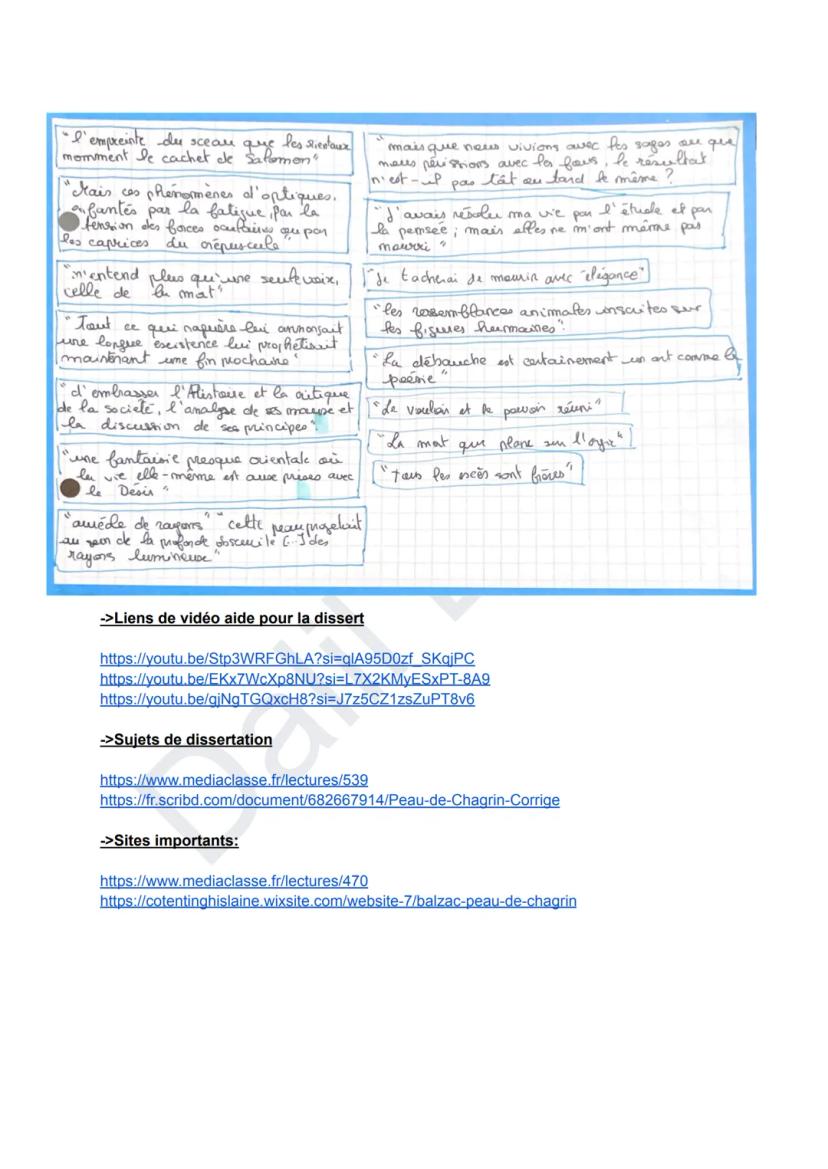 "l'empreinte du sceau que les orientaux
nomment le cachet de Salomon"
"Mais ces phénomènes d'optiques,
enfantés par la fatigue, par la
tension des forces oculaires ou par
les caprices du crépuscule"
"n'entend plus qu'une seule voix,
celle de la mort"
"Tout ce qui naguère lui annonçait
une longue existence lui prophétisait
maintenant une fin prochaine"
"d'embrasser l'Histoire et la critique
de la société, l'analyse de ses maux et
la discussion de ses principes"
"une fantaisie presque orientale où
la vie elle-même est aux prises avec
le Désir"
"auréole de rayons" "cette peau projetait
au sein de la profonde obscurité [...] des
rayons lumineux"
"mais que nous vivions avec les sages ou que
nous périssions avec les fous, le résultat
n'est-il pas tôt ou tard le même ?
"J'avais résolu ma vie par l'étude et par
la pensée ; mais elles ne m'ont même pas
nourri"
"Je tacherai de mourir avec élégance"
"les ressemblances animales inscrites sur
les figures humaines"
"La débauche est certainement un art comme la
poésie"
"Le vouloir et le pouvoir réuni"
"La mort qui plane sur l'orgie"
"tous les excès sont frères"
->Liens de vidéo aide pour la dissert
https://youtu.be/Stp3WRFGhLA?si=qlA95D0zf_SKqjPC
https://youtu.be/EKx7WcXp8NU?si=L7X2KMyESxPT-8A9
https://youtu.be/gjNgTGQxcH8?si=J7z5CZ1zsZuPT8v6
->Sujets de dissertation
https://www.mediaclasse.fr/lectures/539
https://fr.scribd.com/document/682667914/Peau-de-Chagrin-Corrige
->Sites importants:
https://www.mediaclasse.fr/lectures/470
https://cotentinghislaine.wixsite.com/website-7/balzac-peau-de-chagrin